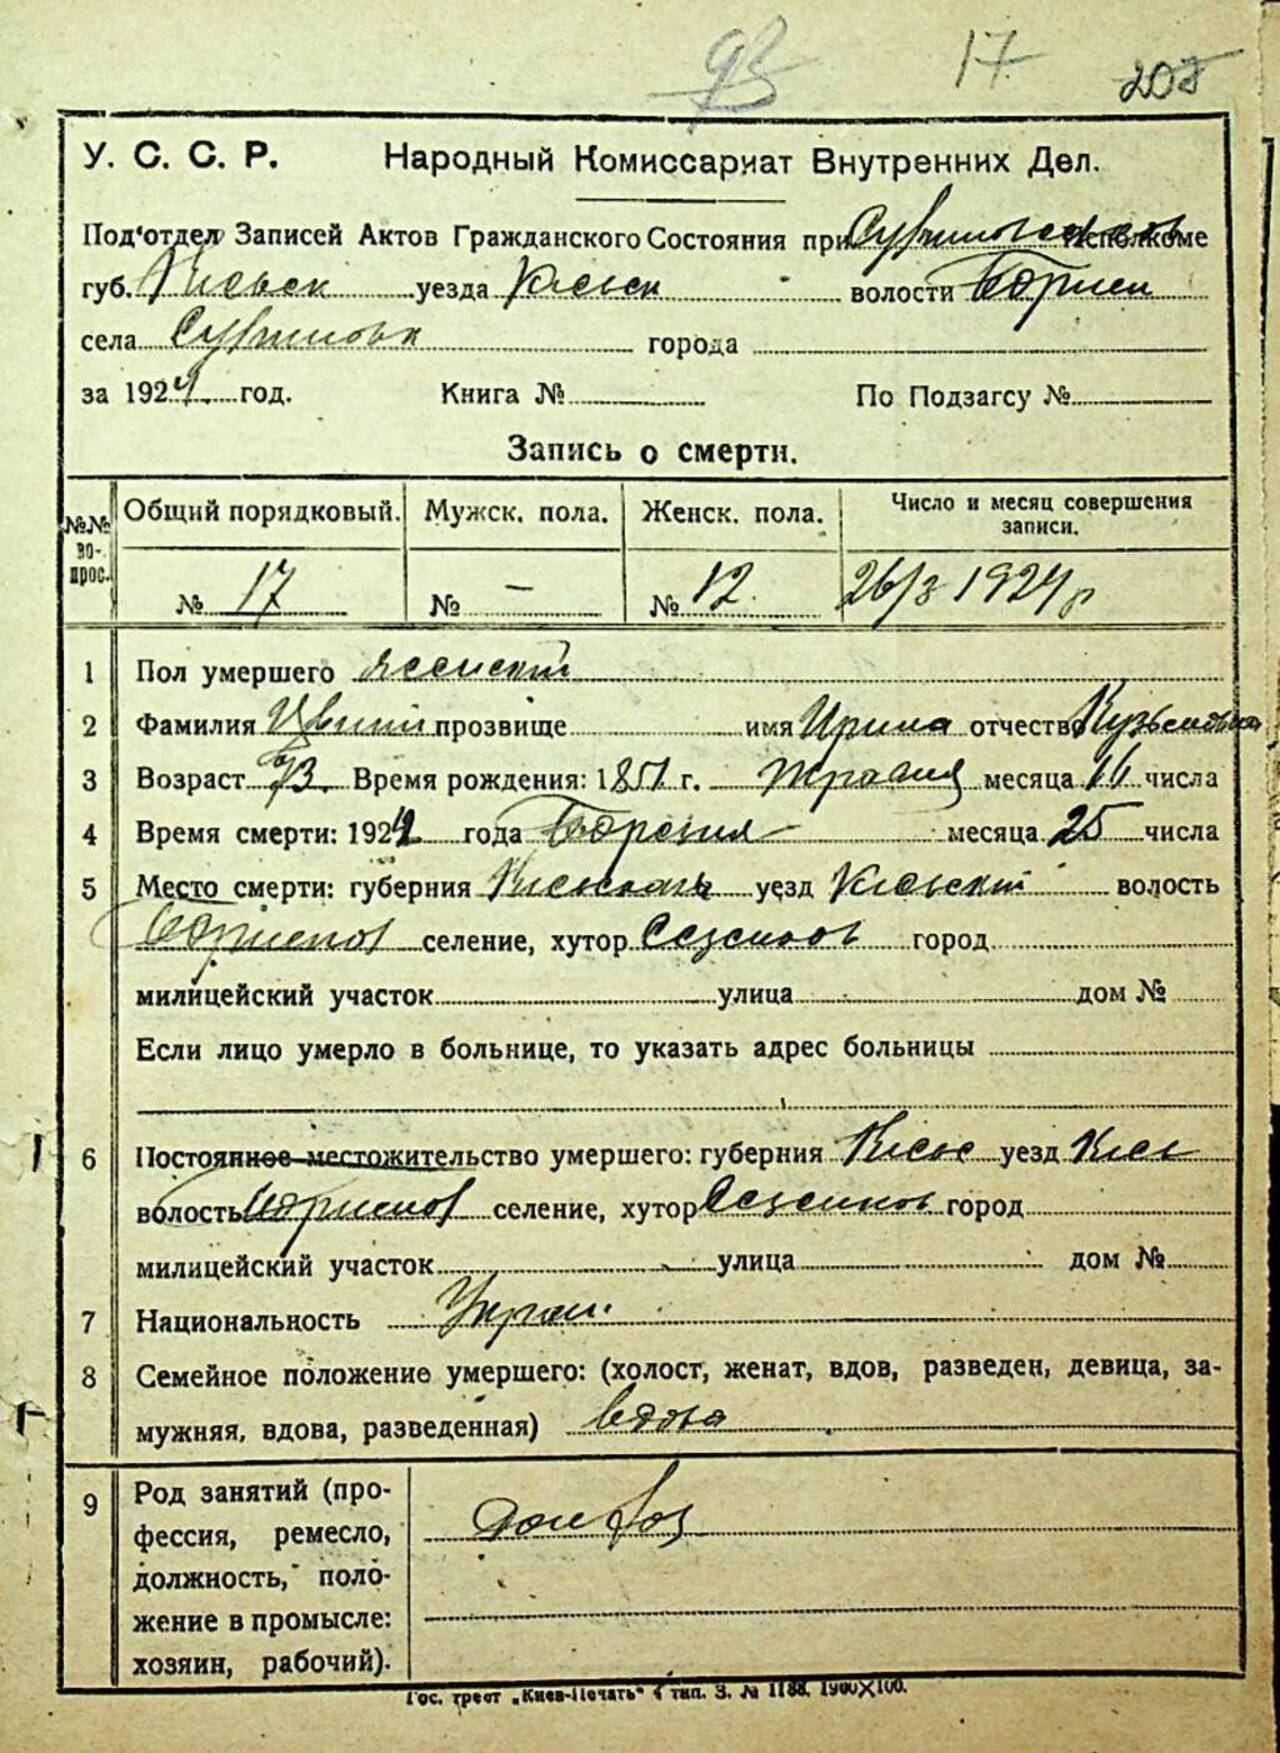 93 17 208
У. С. С. Р. Народный Комиссариат Внутренних Дел.
Под'отдел Записей Актов Гражданского Состояния при Исполкоме
губ. Киевск уезда Киевск волости Борисп
села города
за 1924 год. Книга № По Подзагсу №
Запись о смерти.
№№ во-прос. Общий порядковый. Мужск. пола. Женск. пола. Число и месяц совершения записи.
№ 17 № – № 12. 26/3 1924 р
1 Пол умершего женский
2 Фамилия прозвище имя Ирина отчество Кузьмовна
3 Возраст 73. Время рождения: 1851 г. Травня месяца 16 числа
4 Время смерти: 1924 года Березня месяца 25 числа
5 Место смерти: губерния уезд Киевский волость
Бориспол селение, хутор Сезенков город
милицейский участок улица дом №
Если лицо умерло в больнице, то указать адрес больницы
6 Постоянное местожительство умершего: губерния Киев уезд Киев
волость Бориспол селение, хутор Сезенков город
милицейский участок улица дом №
7 Национальность Украин.
8 Семейное положение умершего: (холост, женат, вдов, разведен, девица, за-
мужняя, вдова, разведенная) вдова
9 Род занятий (про-
фессия, ремесло,
должность, поло-
жение в промысле:
хозяин, рабочий).
Гос. трест „Киев-Печать" 4 тип. З. № 1188. 1900×100.